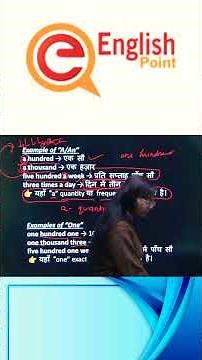 e English
Point
Example of "A/An"
a hundred → एक सौ
one hundred
a thousand → एक हज़ार
five hundred a week → प्रति सप्ताह पाँच सौ
three times a day → दिन में तीन
👉 यहाँ "a" quantity या
है।
a- quant
Examples of "One"
one hundred one →
one thousand three →
five hundred one we
में पाँच सौ
👉 यहाँ "one" exact
है।